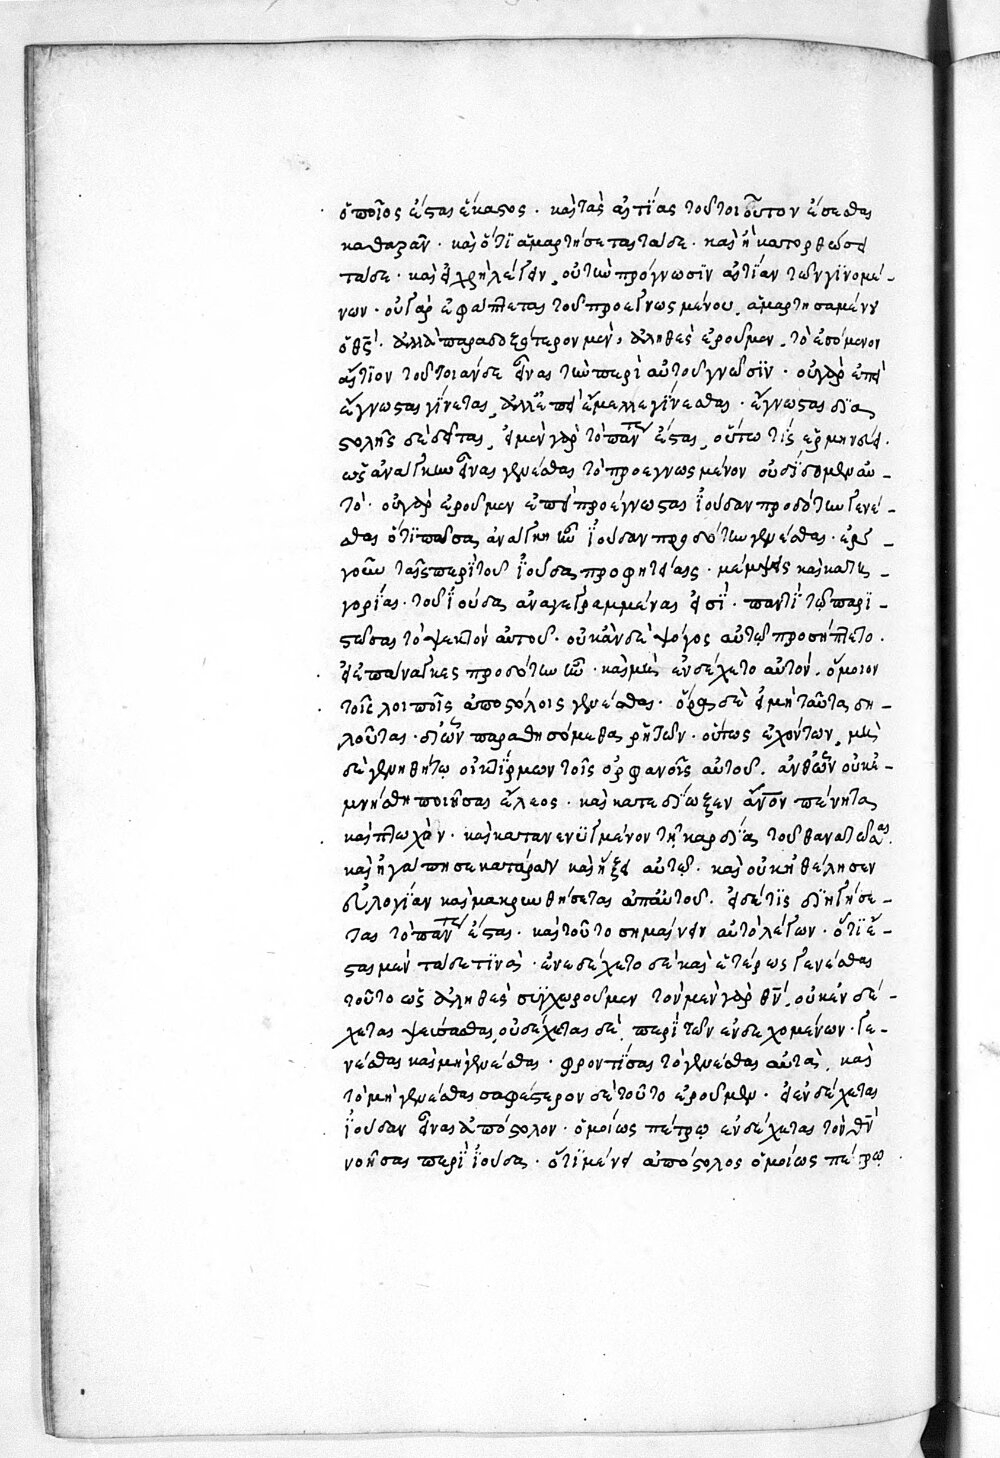 ὁποῖος ἔσται ἕκαστος · καὶ τὰς αἰτίας τοῦ τοιοῦτον ἔσεσθαι
καθορᾶν · καὶ ὅτι ἁμαρτήσεται τάδε · καὶ ἢ κατορθώσει
τάδε · καὶ εἰ χρὴ λέγειν, οὐ τὼ πρόγνωσιν αἰτίαν τῶν γινομέ-
νων · οὐ γὰρ ἐφάπτεται τοῦ προεγνωσμένου ἁμαρτησαμένου
ὁ θς · ἀλλὰ παραδοξότερον μὲν, ἀληθὲς ἐροῦμεν, τὸ ἐσόμενον
αἴτιον τοῦ τοιάνδε εἶναι τὼ περὶ αὐτοῦ γνῶσιν · οὐ γὰρ ἐπεὶ
ἔγνωσται γίνεται, ἀλλ' ἐπεὶ ἔμελλε γίνεσθαι · ἔγνωσται δια
στολῆς δὲ δεῖται, εἰ μὲν γὰρ τὸ πάντως ἔσται, οὕτω τὶς ἑρμηνεύει ·
ὡς ἀνάγκην εἶναι γενέσθαι τὸ προεγνωσμένον οὐ δίδομεν αὐ-
τό · οὐ γὰρ ἐροῦμεν ἐπεὶ προέγνωσται ἰούδαν προδότην γενέ-
σθαι ὅτι πᾶσα ἀνάγκη ἦν ἰούδαν προδότην γενέσθαι · ἐν
γοῦν ταῖς περὶ τοῦ ἰούδα προφητείαις · μέμψεις καὶ κατη-
γορίαι · τοῦ ἰούδα ἀναγεγραμμέναι εἰσὶ · παντὶ τῷ παρι-
στῶσαι τὸ ψεκτὸν αὐτοῦ · οὐκ ἂν δὲ ψόγος αὐτῷ προσήπτετο ·
εἰ ἐπάναγκες προδότην ἦν · καὶ μὴ ἐνδέχετο αὐτὸν, ὅμοιον
τοῖς λοιποῖς ἀποστόλοις γενέσθαι · ὅρα δὲ εἰ μὴ ταῦτα δη-
λοῦται · δι' ὧν παραθησόμεθα ῥητῶν · οὕτως ἐχόντων, μὴ
δὲ γενηθήτω οἰκτίρμων τοῖς ὀρφανοῖς αὐτοῦ, ἀνθ' ὧν οὐκ ἐ-
μνήσθη ποιῆσαι ἔλεος · καὶ κατεδίωξεν ἄνον πένητα
καὶ πτωχὸν · καὶ κατανενυγμένον τῇ καρδίᾳ τοῦ θανατῶσαι ·
καὶ ἠγάπησε κατάραν καὶ ἥξει αὐτῷ · καὶ οὐκ ἠθέλησεν
εὐλογίαν καὶ μακρυνθήσεται ἀπ' αὐτοῦ · εἰ δέ τις διηγήσε-
ται τὸ πάντως ἔσται · καὶ τοῦτο σημαίνειν αὐτὸ λέγων · ὅτι ἔ-
σται μὲν τάδε τινὰ · ἐνεδέχετο δὲ καὶ ἑτέρως γενέσθαι
τοῦτο ὡς ἀληθὲς συγχωροῦμεν τὸν μὲν γὰρ θν, οὐκ ἐνδέ-
χεται ψεύσασθαι, οὐ δέχεται δὲ, περὶ τῶν ἐνδεχομένων · γε-
νέσθαι καὶ μὴ γενέσθαι · φροντίσαι τὸ γενέσθαι αὐτὰ, καὶ
τὸ μὴ γενέσθαι σαφέστερον δὲ τοῦτο ἐροῦμεν · εἰ ἐνδέχεται
ἰούδαν εἶναι ἀπόστολον · ὁμοίως πέτρῳ ἐνδέχεται τὸν θν
νοῆσαι περὶ ἰούδα · ὅτι μένει ἀπόστολος ὁμοίως πέτρῳ